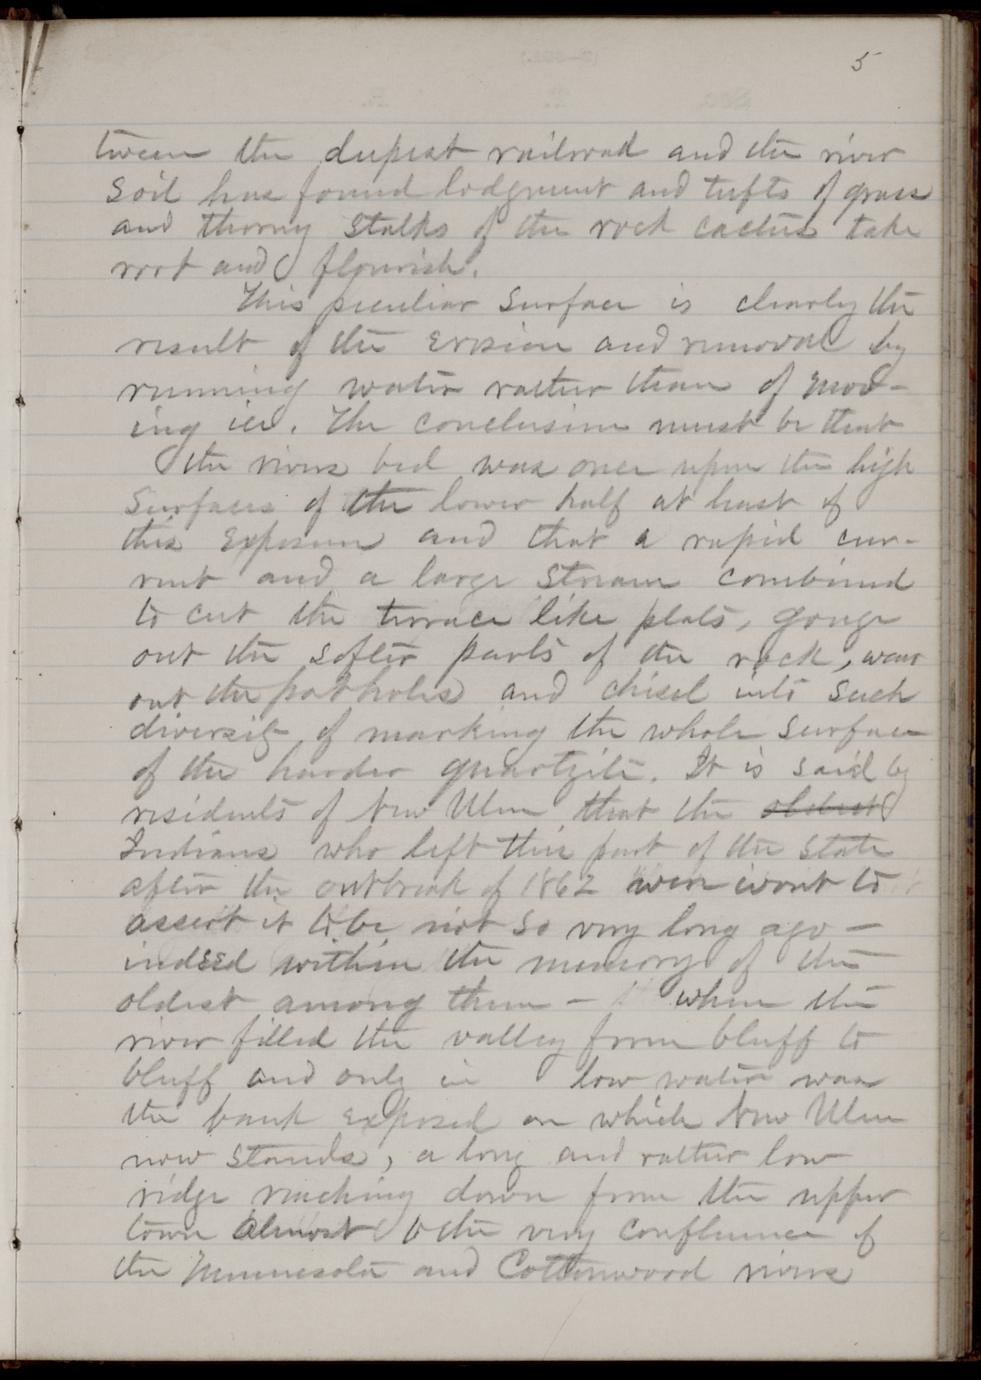 5
tween the deepest railroad and the river
soil has found lodgment and tufts of grass
and thorny stalks of the rock cactus take
root and flourish.
This peculiar surface is clearly the
result of the erosion and removal by
running water rather than of mov-
ing ice. The conclusion must be that
the rivers bed was once upon the high
surfaces of the lower half at least of
this exposure and that a rapid cur-
rent and a large stream combined
to cut the terrace like plats, gouge
out the softer parts of the rock, wear
out the potholes and chisel into such
diversity of marking the whole surface
of the harder quartzite. It is said by
residents of New Ulm that the oldest
Indians who left this part of the state
after the outbreak of 1862 were wont to
assert it to be not so very long ago -
indeed within the memory of the
oldest among them - when the
river filled the valley from bluff to
bluff and only in low water was
the bank exposed on which New Ulm
now stands, a long and rather low
ridge reaching down from the upper
town almost to the very confluence of
the Minnesota and Cottonwood rivers